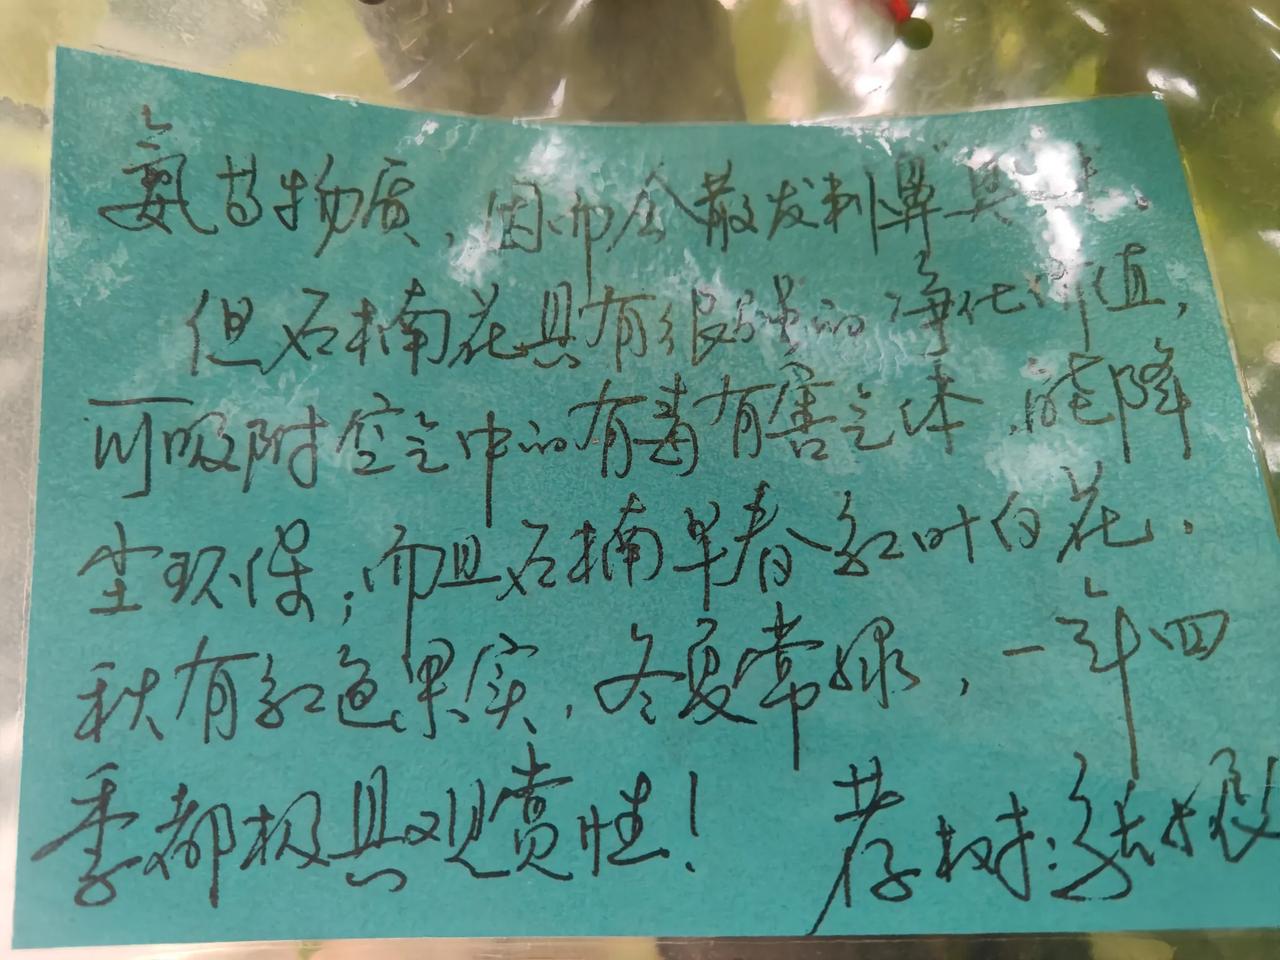 氨苷物质，因而会散发刺鼻臭味。
但石楠花具有很强的净化价值，
可吸附空气中的有毒有害气体，能降
尘环保；而且石楠早春红叶白花，
秋有红色果实，冬夏常绿，一年四
季都极具观赏性！ 荐树：张振